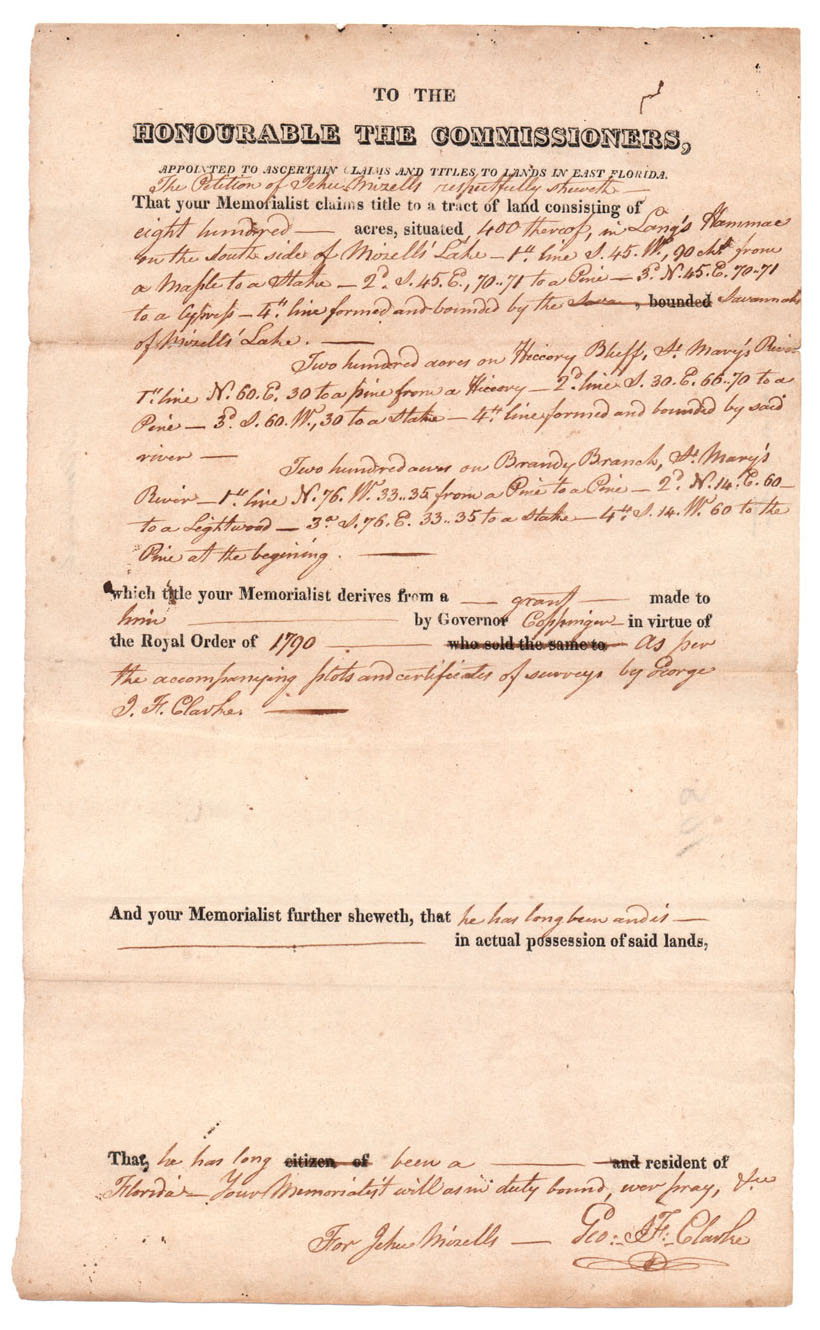 TO THE
HONOURABLE THE COMMISSIONERS,
APPOINTED TO ASCERTAIN CLAIMS AND TITLES TO LANDS IN EAST FLORIDA.
The Petition of Jehu Mizells respectfully sheweth —
That your Memorialist claims title to a tract of land consisting of
eight hundred — acres, situated 400 thereof, in Lang's Hammac
on the south side of Mizells' Lake — 1st line S. 45. W., 90 chs from
a Maple to a Stake — 2d. S. 45. E., 70..71 to a Pine — 3d. N. 45. E. 70..71
to a Cypress — 4th line formed and bounded by the Sava , bounded Savannahs
of Mizells' Lake. —
Two hundred acres on Hickory Bluff, St. Mary's River
1st line N. 60. E. 30 to a pine from a Hiccory — 2d line S. 30. E. 66..70 to a
Pine — 3d S. 60. W., 30 to a stake — 4th line formed and bounded by said
river —
Two hundred acres on Brandy Branch, St. Mary's
River — 1st line N. 76. W. 33..35 from a Pine to a Pine — 2d. N. 14. E. 60 —
to a Lightwood — 3d S. 76. E. 33..35 to a stake — 4th S. 14. W. 60 to the
Pine at the begining. —
which title your Memorialist derives from a — grant — made to
him — by Governor Coppinger — in virtue of
the Royal Order of 1790 — who sold the same to — As per
the accompanying plots and certificates of surveys by George
J. F. Clarke. —
And your Memorialist further sheweth, that he has long been and is —
— in actual possession of said lands,
That, he has long citizen of been a — and resident of
Florida — Your Memorialist will as in duty bound, ever pray, &c
For Jehu Mizells — Geo: J: F: Clarke